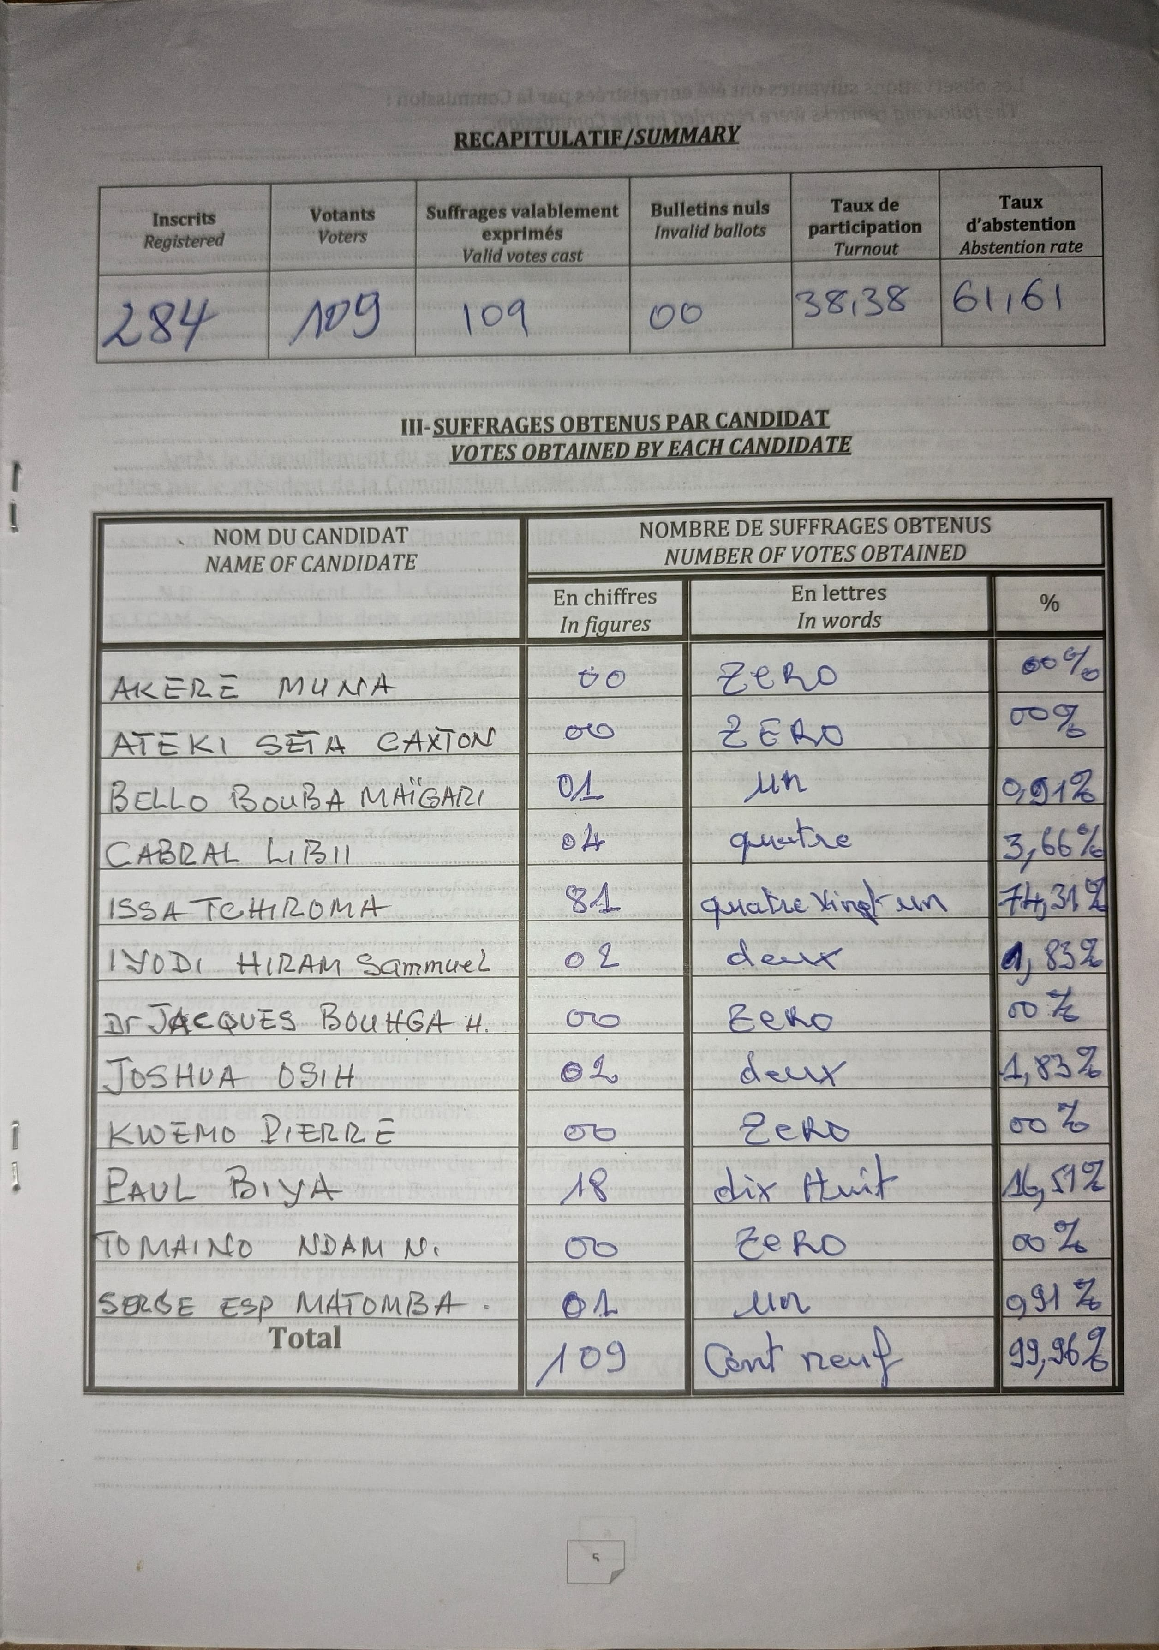 RECAPITULATIF/SUMMARY
Inscrits
Registered
Votants
Voters
Suffrages valablement
exprimés
Valid votes cast
Bulletins nuls
Invalid ballots
Taux de
participation
Turnout
Taux
d'abstention
Abstention rate
284 109 109 00 38,38 61,61
III-SUFFRAGES OBTENUS PAR CANDIDAT
VOTES OBTAINED BY EACH CANDIDATE
NOM DU CANDIDAT
NAME OF CANDIDATE
NOMBRE DE SUFFRAGES OBTENUS
NUMBER OF VOTES OBTAINED
En chiffres
In figures
En lettres
In words
%
AKERE MUNA 00 ZERO 00%
ATEKI SETA CAXTON 00 ZERO 00%
BELLO BOUBA MAÏGARI 01 un 0,91%
CABRAL LIBII 04 quatre 3,66%
ISSA TCHIROMA 81 quatre vingt-un 74,31%
IYODI HIRAM Sammuel 02 deux 1,83%
Dr JACQUES BOUHGA H. 00 ZERO 00%
JOSHUA OSIH 02 deux 1,83%
KWEMO PIERRE 00 ZERO 00%
PAUL BIYA 18 dix Huit 16,51%
TOMAINO NDAM N. 00 ZERO 00%
SERGE ESP MATOMBA. 01 un 0,91%
Total 109 Cent neuf 99,96%
5